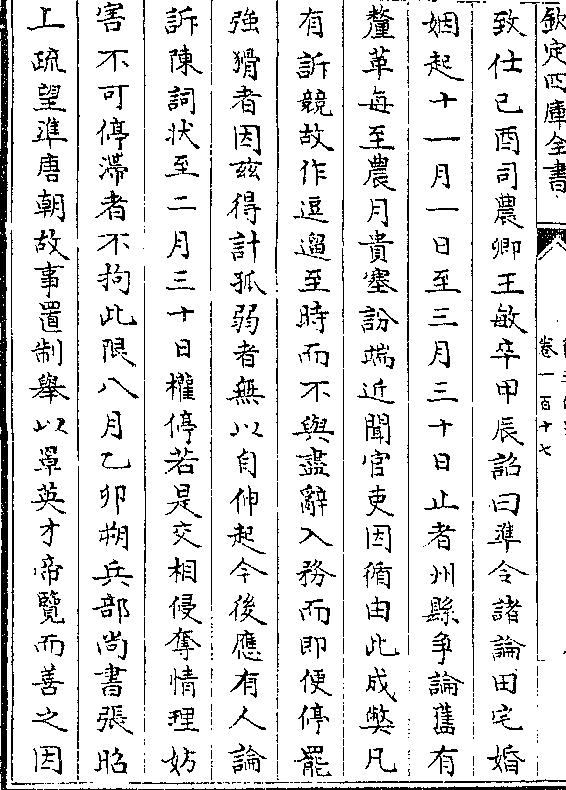 欽定四庫全書
卷一百十七
致仕己酉司農卿王敏卒甲辰詔曰準令諸論田宅婚
姻起十一月一日至三月三十日止者州縣爭論舊有
釐革每至農月貴塞訟端近聞官吏因循由此成弊凡
有訴競故作逗遛至時而不與盡辭入務而即便停罷
強猾者因玆得計孤弱者無以自伸起今後應有人論
訴陳詞狀至二月三十日權停若是交相侵奪情理妨
害不可停滯者不拘此限八月乙卯朔兵部尚書張昭
上疏望準唐朝故事置制舉以罩英才帝覽而善之因